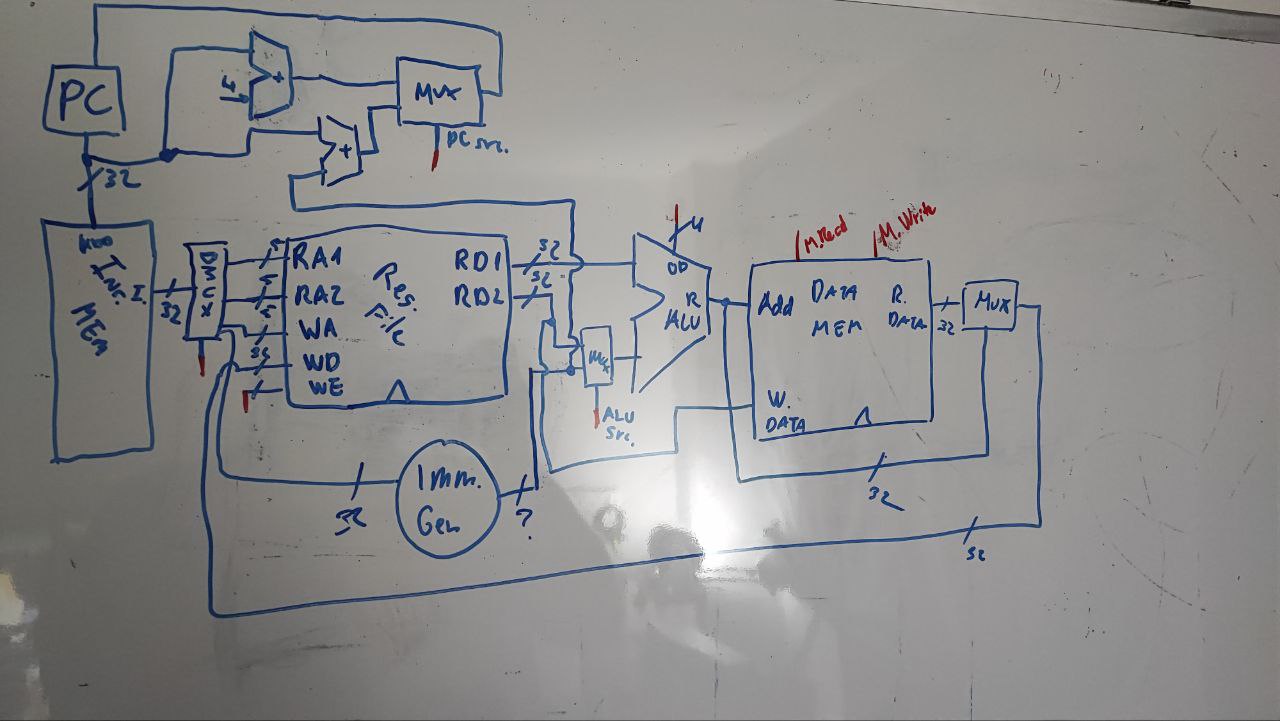 PC
4
+
+
MUX
PC src.
32
Add
Ins.
MEM
I.
32
DMUX
5
5
5
32
RA1
RA2
WA
WD
WE
Reg.
File
RD1
RD2
32
32
Mux
ALU
Src.
4
OP
R
ALU
M.Read
M.Write
Add
DATA
MEM
R.
DATA
W.
DATA
32
MUX
32
Imm.
Gen
?
32
32